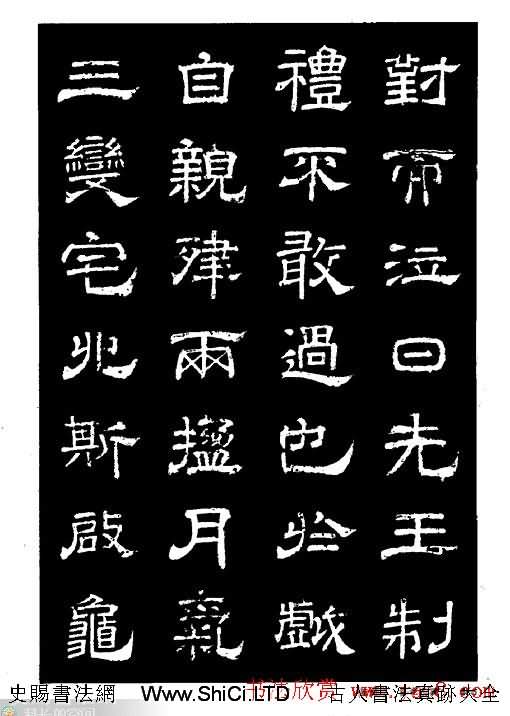 對而泣曰先王制
禮不敢過也於戲
自親肂兩楹月
三變宅兆斯啟龜
书法欣赏
史賜書法網 www.ShiCi.LTD 古人書法真跡大全